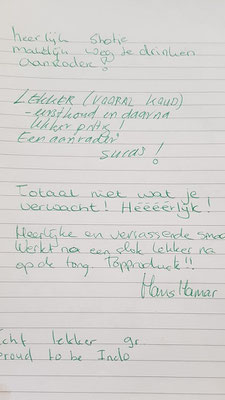 heerlijk shotje
makkelijk weg te drinken
aanrader!
LEKKER (VOORAL KOUD)
en daarna
lekker pittig
Een aanrader
sucas!
Totaal niet wat je
verwacht! Hëëëërlijk!
Heerlijke en verrassende smaa
Werkt na een slok lekker na
op de tong. Topproduct!!
Hans Hamar
cht lekker gr.
proud to be Indo